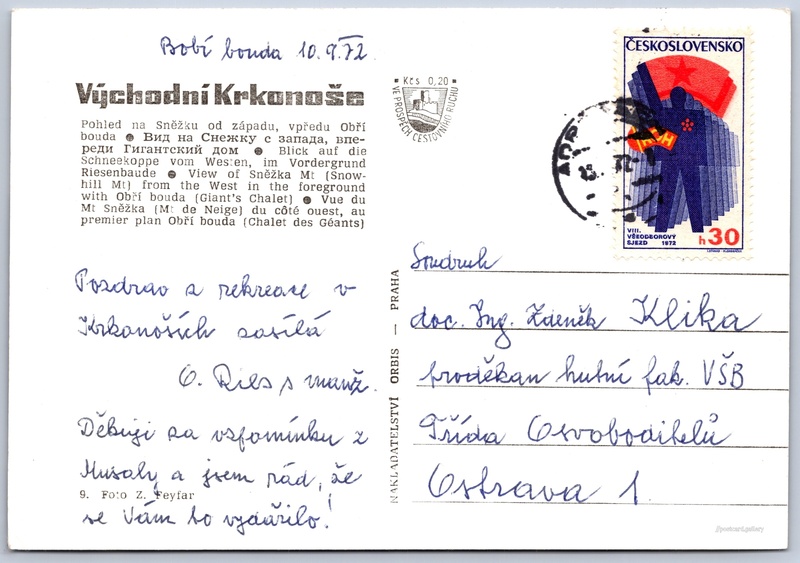 Bobí bouda 10.9.72
Východní Krkonoše
Pohled na Sněžku od západu, vpředu Obří
bouda ● Вид на Снежку с запада, впе-
реди Гигантский дом ● Blick auf die
Schneekoppe vom Westen, im Vordergrund
Riesenbaude ● View of Sněžka Mt (Snow-
hill Mt) from the West in the foreground
with Obří bouda (Giant's Chalet) ● Vue du
Mt Sněžka (Mt de Neige) du côté ouest, au
premier plan Obří bouda (Chalet des Géants)
Pozdrav z rekreace v
Krkonoších zasílá
O. Ries s manž.
Děkuji za vzpomínku z
Musaly a jsem rád, že
se Vám to vydařilo!
9. Foto Z. Feyfar
Kčs 0,20
VE PROSPĚCH CESTOVNÍHO RUCHU
NAKLADATELSTVÍ ORBIS — PRAHA
ČESKOSLOVENSKO
ROH
VIII.
VŠEODBOROVÝ
SJEZD 1972
h30
Soudruh
doc. Ing. Zdeněk Klika
proděkan hutní fak. VŠB
Třída Osvoboditelů
Ostrava 1.
//postcard.gallery